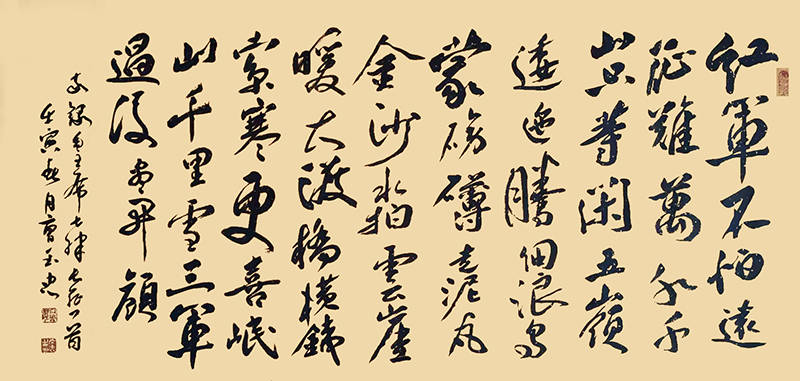 紅軍不怕遠
征難萬水千
山只等閑五嶺
逶迤騰細浪烏
蒙磅礴走泥丸
金沙水拍雲崖
暖大渡橋橫鐵
索寒更喜岷
山千里雪三軍
過後盡開顏
敬錄毛主席七律長征一首
壬寅春月曹玉忠